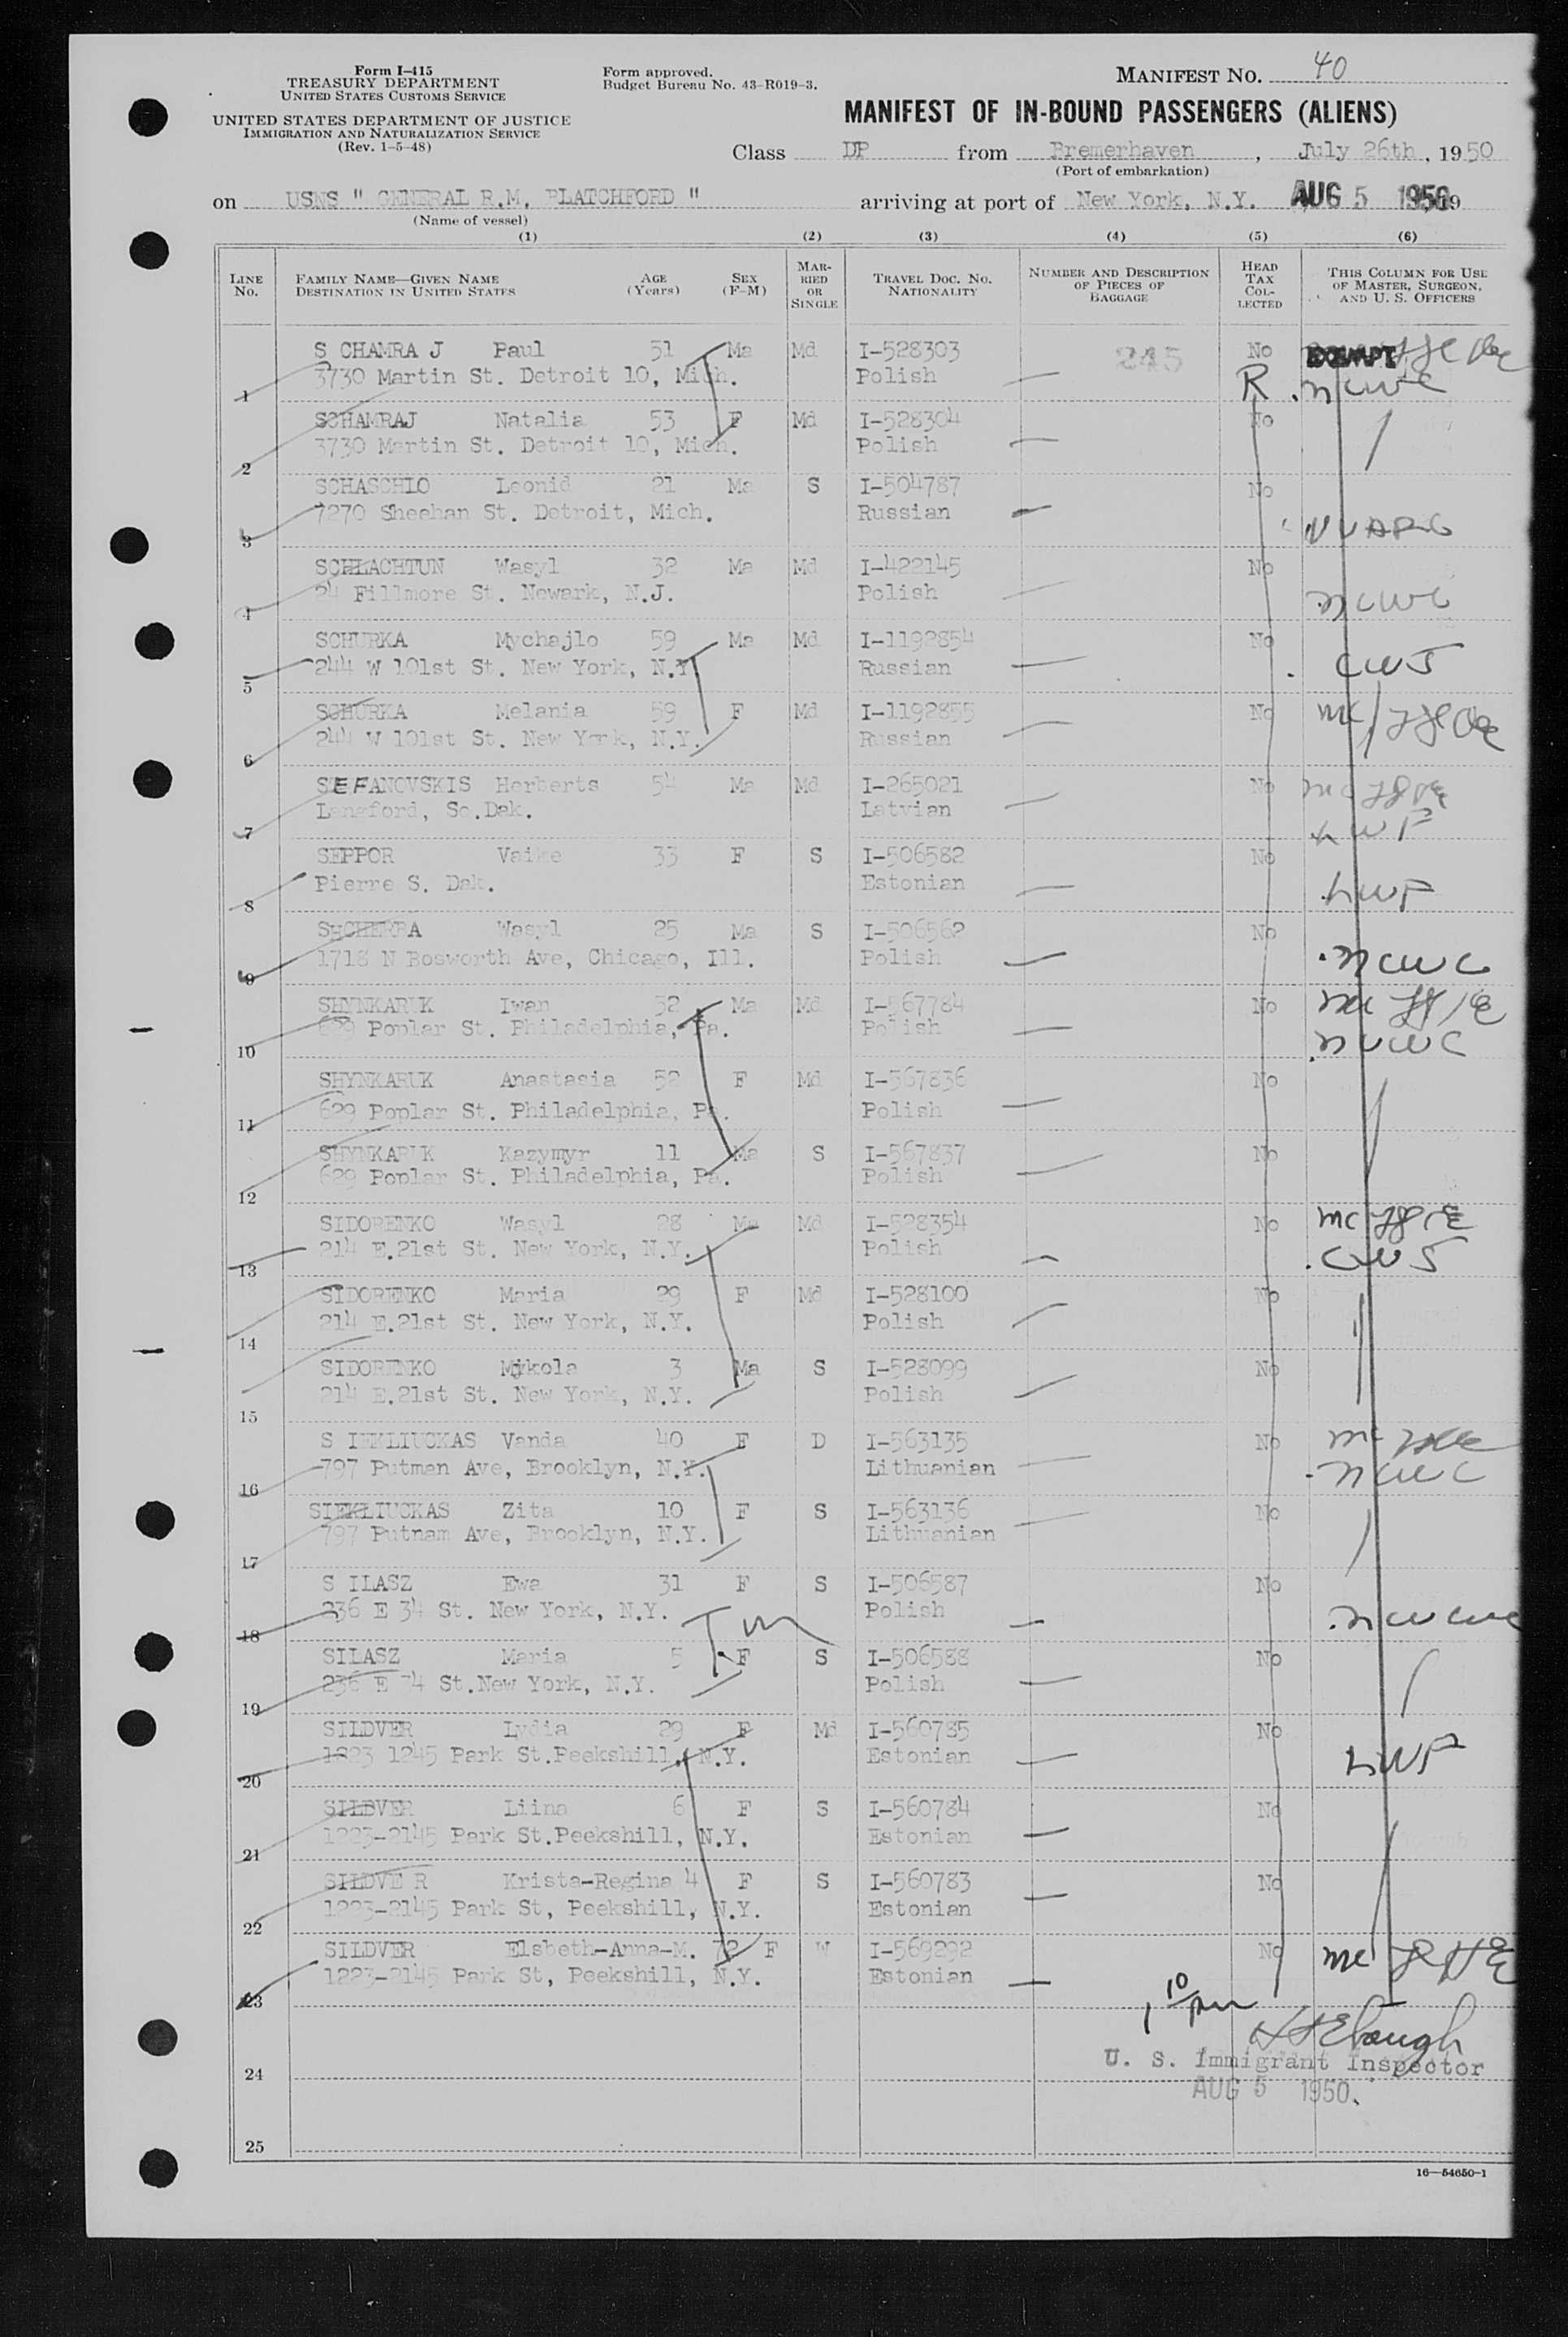 Form I-415
TREASURY DEPARTMENT
UNITED STATES CUSTOMS SERVICE
UNITED STATES DEPARTMENT OF JUSTICE
IMMIGRATION AND NATURALIZATION SERVICE
(Rev. 1-5-48)
Form approved.
Budget Bureau No. 43-R019-3.
MANIFEST NO. 40
MANIFEST OF IN-BOUND PASSENGERS (ALIENS)
Class DP from Bremerhaven, July 26th, 1950
(Port of embarkation)
on USNS " GENERAL R.M. BLATCHFORD " arriving at port of New York, N.Y. AUG 5 1950 19
(Name of vessel)
(1) (2) (3) (4) (5) (6)
LINE NO. FAMILY NAME—GIVEN NAME DESTINATION IN UNITED STATES AGE (Years) SEX (F-M) MARRIED OR SINGLE TRAVEL DOC. NO. NATIONALITY NUMBER AND DESCRIPTION OF PIECES OF BAGGAGE HEAD TAX COLLECTED THIS COLUMN FOR USE OF MASTER, SURGEON, AND U. S. OFFICERS
S CHAMRA J Paul 51 Ma Md I-528303 245 No EXEMPT
1 3730 Martin St. Detroit 10, Mich. Polish R NCWC
SCHAMRAJ Natalia 53 F Md I-528304 No
2 3730 Martin St. Detroit 10, Mich. Polish
SCHASCHIO Leonid 21 Ma S I-504787 No
3 7270 Sheehan St. Detroit, Mich. Russian
SCHLACHTUN Wasyl 32 Ma Md I-422145 No
4 24 Fillmore St. Newark, N.J. Polish NCWC
SCHURKA Mychajlo 59 Ma Md I-1192854 No
5 244 W 101st St. New York, N.Y. Russian CWS
SCHURKA Melania 59 F Md I-1192855 No
6 244 W 101st St. New York, N.Y. Russian
SEFANOVSKIS Herberts 54 Ma Md I-265021 No
7 Langford, So.Dak. Latvian LWF
SEPPOR Vaike 33 F S I-506582 No
8 Pierre S. Dak. Estonian LWF
SHCHERBA Wasyl 25 Ma S I-506562 No
9 1718 N Bosworth Ave, Chicago, Ill. Polish NCWC
SHYNKARUK Iwan 52 Ma Md I-567784 No
10 629 Poplar St. Philadelphia, Pa. Polish NCWC
SHYNKARUK Anastasia 52 F Md I-567836 No
11 629 Poplar St. Philadelphia, Pa. Polish
SHYNKARUK Kazymyr 11 Ma S I-567837 No
12 629 Poplar St. Philadelphia, Pa. Polish
SIDORENKO Wasyl 28 Ma Md I-528354 No
13 214 E.21st St. New York, N.Y. Polish CWS
SIDORENKO Maria 29 F Md I-528100 No
14 214 E.21st St. New York, N.Y. Polish
SIDORENKO Mykola 3 Ma S I-528099 No
15 214 E.21st St. New York, N.Y. Polish
S IEKLIUCKAS Vanda 40 F D I-563135 No
16 797 Putman Ave, Brooklyn, N.Y. Lithuanian NCWC
SIEKLIUCKAS Zita 10 F S I-563136 No
17 797 Putnam Ave, Brooklyn, N.Y. Lithuanian
S ILASZ Ewa 31 F S I-506587 No
18 236 E 34 St. New York, N.Y. Polish
SILASZ Maria 5 F S I-506588 No
19 236 E 34 St.New York, N.Y. Polish
SILDVER Lydia 29 F Md I-560785 No
20 1223 1245 Park St.Peekshill, N.Y. Estonian LWF
SILDVER Liina 6 F S I-560784 No
21 1223-2145 Park St.Peekshill, N.Y. Estonian
SILDVE R Krista-Regina 4 F S I-560783 No
22 1223-2145 Park St, Peekshill, N.Y. Estonian
SILDVER Elsbeth-Anna-M. 72 F W I-569292 No
23 1223-2145 Park St, Peekshill, N.Y. Estonian
1 10 pm
24 U. S. Immigrant Inspector
AUG 5 1950.
25
16—54650-1